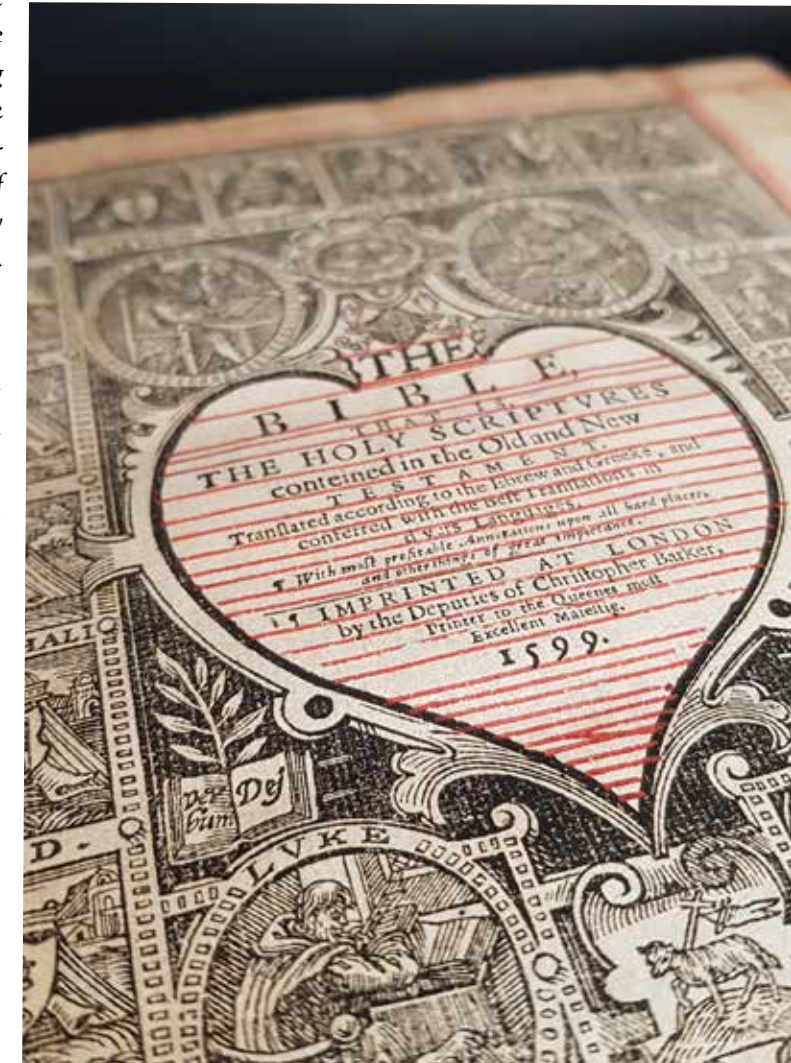 THE
BIBLE,
THAT IS,
THE HOLY SCRIPTVRES
conteined in the Old and New
TESTAMENT.
Tranſlated according to the Ebrew and Greeke, and
conferred with the beſt Tranſlations in
Languages.
¶ With moſt profitable Annotations upon all hard places,
and other things of great importance.
¶ IMPRINTED AT LONDON
by the Deputies of Chriſtopher Barker,
Printer to the Queenes moſt
Excellent Maieſtie.
1599.
Ver
bum
Dej
HALI
D.
LVKE